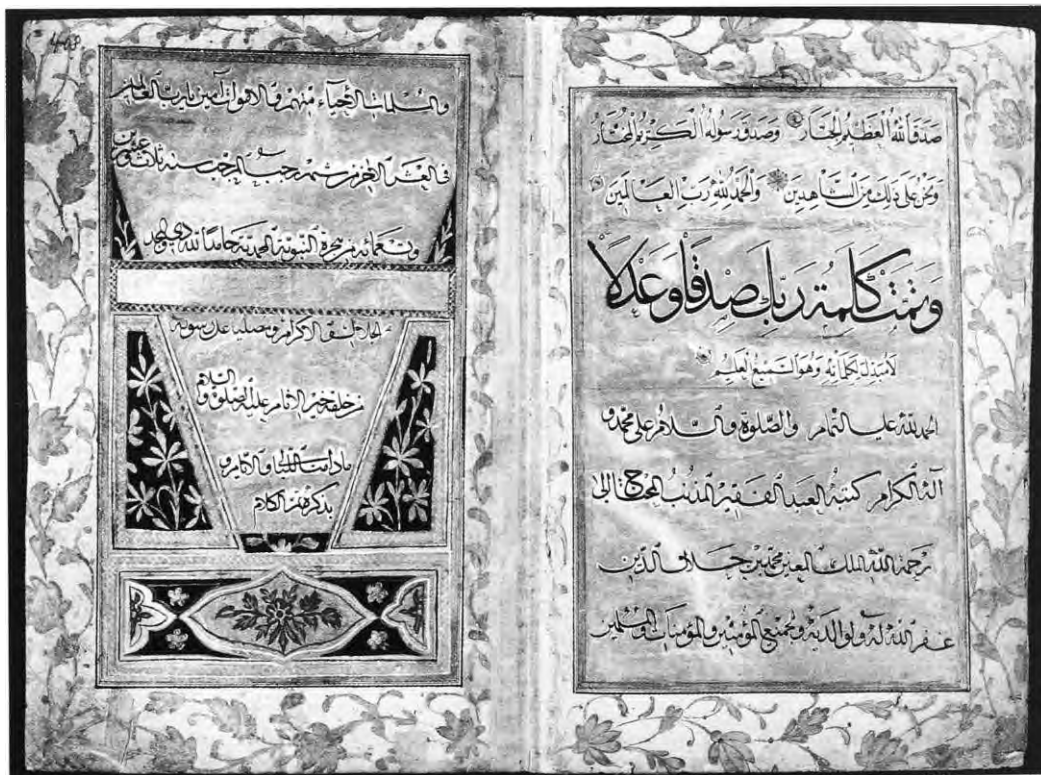 صَدَقَ اللهُ العَظِيمُ الجَبَّار وَصَدَقَ رَسُولُهُ الكَرِيمُ المُخْتَارُ
وَنَحْنُ عَلَى ذَلِكَ مِنَ الشَّاهِدِينَ وَالحَمْدُ لِلَّهِ رَبِّ العَالَمِينَ
وَتَمَّتْ كَلِمَةُ رَبِّكَ صِدْقًا وَعَدْلًا
لَا مُبَدِّلَ لِكَلِمَاتِهِ وَهُوَ السَّمِيعُ العَلِيمُ
الحمد لله على التمام والصلوة والسلام على محمد و
آله الكرام كتبه العبد الفقير المذنب المحتاج الى
رحمة الله الملك المعين محمد بن جلال الدين
غفر الله له ولوالديه ولجميع المؤمنين والمؤمنات والمسلمين
والمسلمات الاحياء منهم والاموات آمين يا رب العالمين
فى العشر من شهر رجب المرجب سنه ثلاث عشرين
وتعمائه من هجرة النبوية المحمدية حامدا لله ذى المجد
على رسوله
من خلقه خير الانام عليه الصلوة والسلام
ما دامت الليالى والايام و
بذكره الكلام